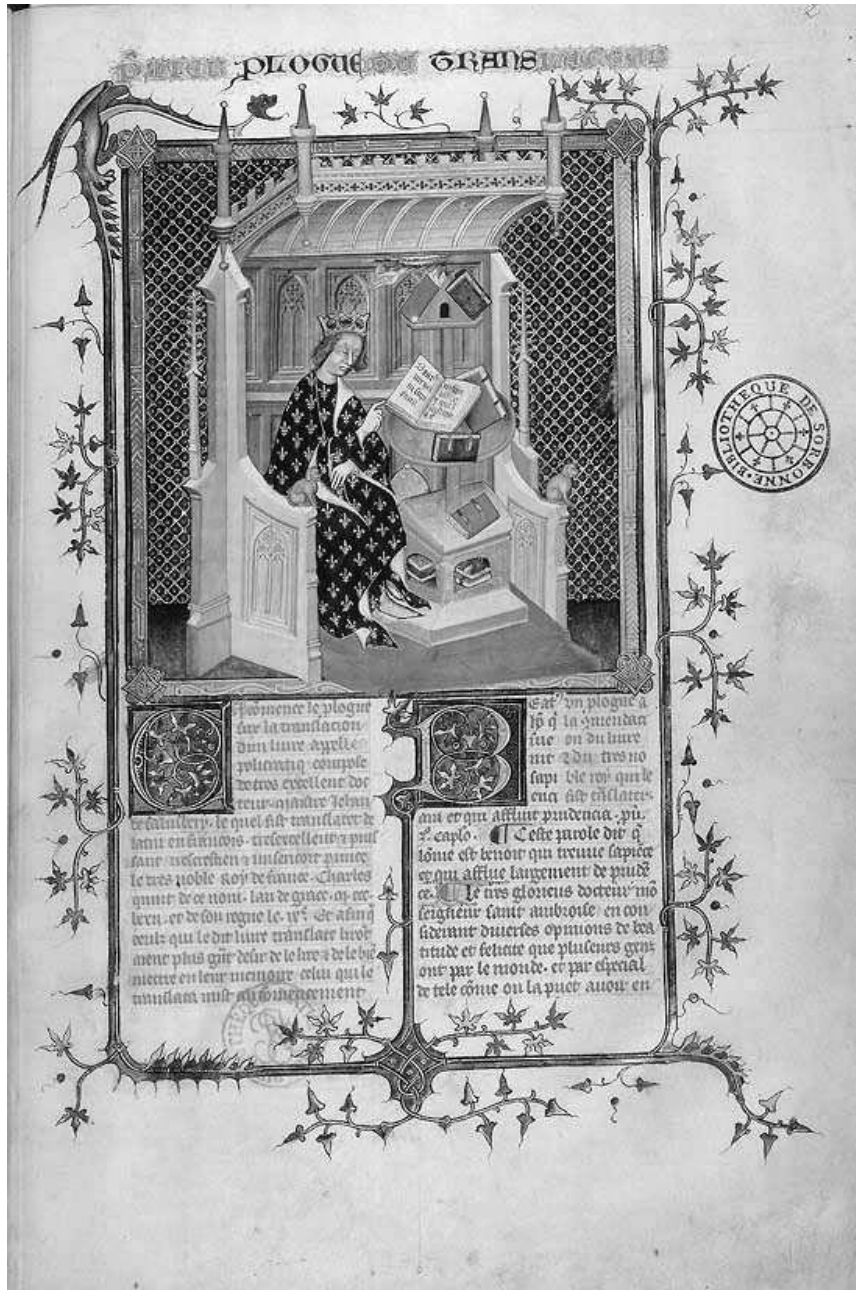 PLOGUE DU TRANS
BIBLIOTHEQUE DE SORBONNE
C
comence le plogue
sur la translacion
dun liure appelle
policratiq compose
de tres excellent doc
teur maistre Jehan
de salusbery. le quel fist translater de
latin en francois. tresexcellent & puis
sant prince
le tres noble Roy de france. Charles
quint de ce nom. lan de grace.
et de son regne le Et afin q̄
ceulx qui le dit liure translate liront
aient plus gr̄nt desir de le lire & de le
mectre en leur memoire celui qui le
translata mist au comencement
B
Eat⁹ vn plogue a
la
on du liure
nit & du tres no
sapi ble roy qui le
enci fist trāslater.
am et qui affluit prudencia. pū.
Ceste parole dit q̄
lōme est benoit qui treuue sapiēce
et qui afflue largement de prudē
ce. le tres glorieus docteur mō
seigneur saint ambroise. en con
siderant diuerses opinions de bea
titude et felicite que pluseurs gens
ont par le monde. et par especial
de tele cōme on la puet auoir en